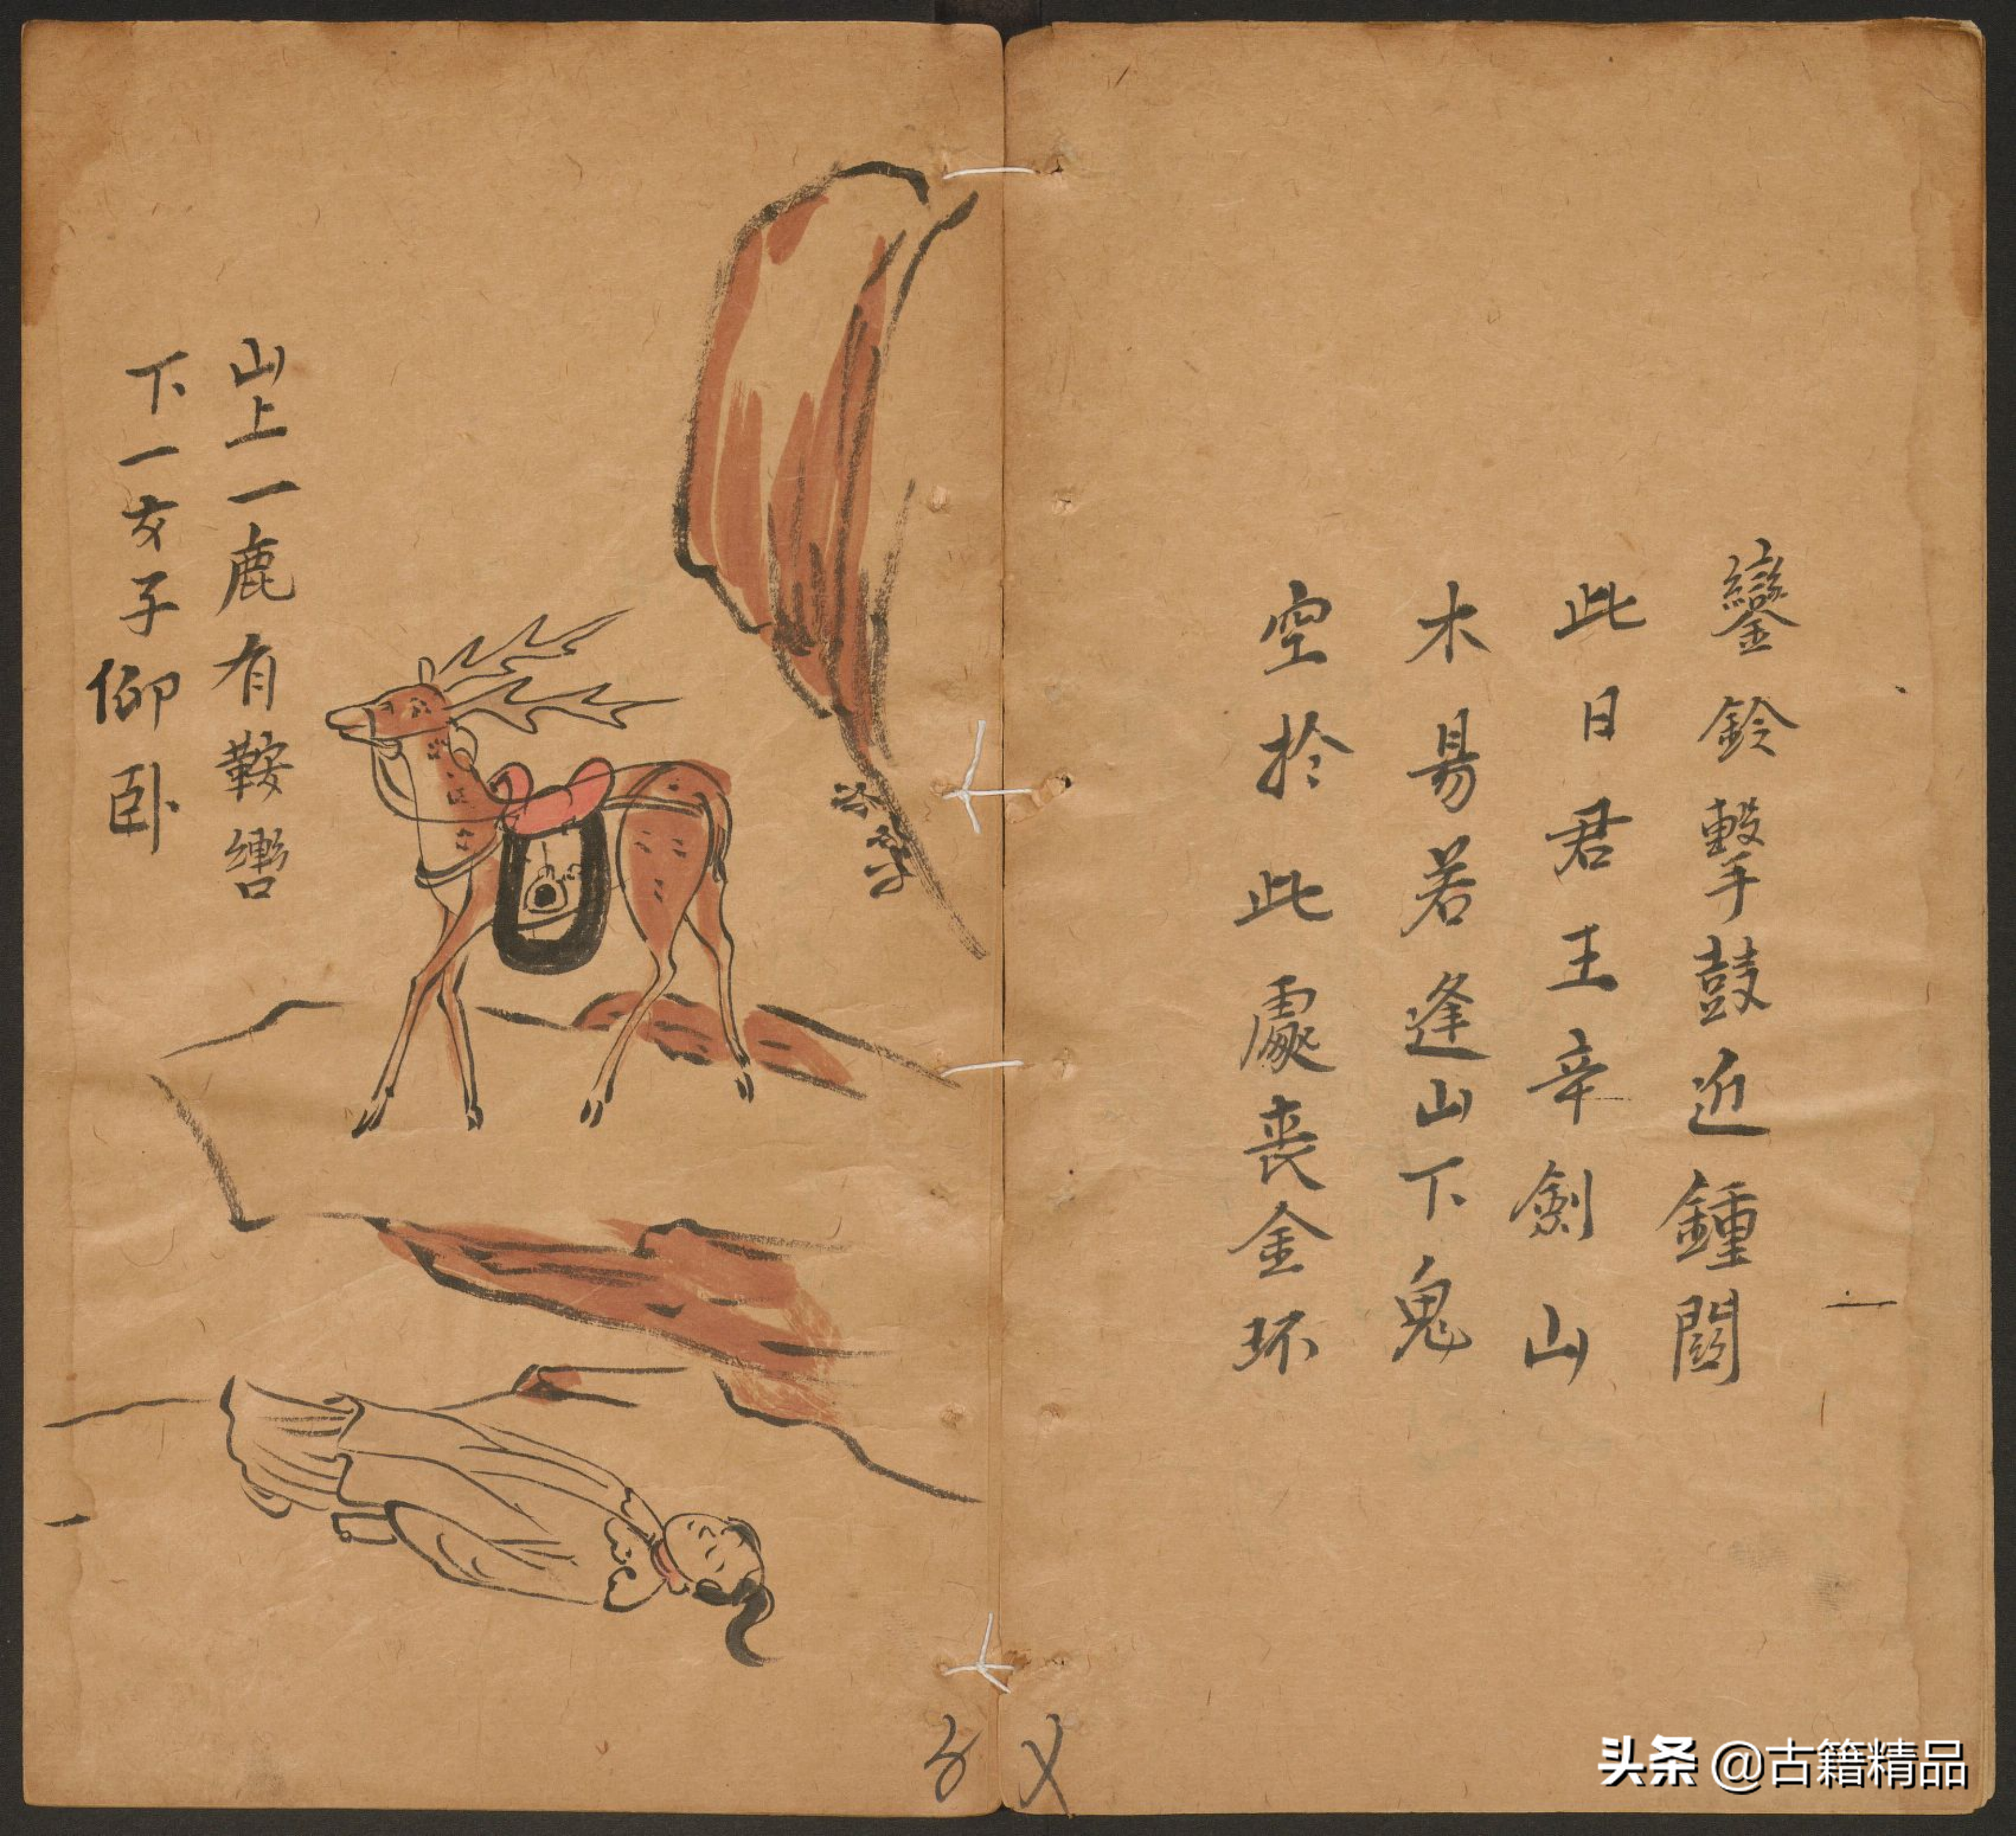 鑾鈴擊鼓近鍾閣
此日君王辛劍山
木易若逢山下鬼
空扵此處喪金环
山上一鹿有鞍轡
下一女子仰卧
头条 @古籍精品